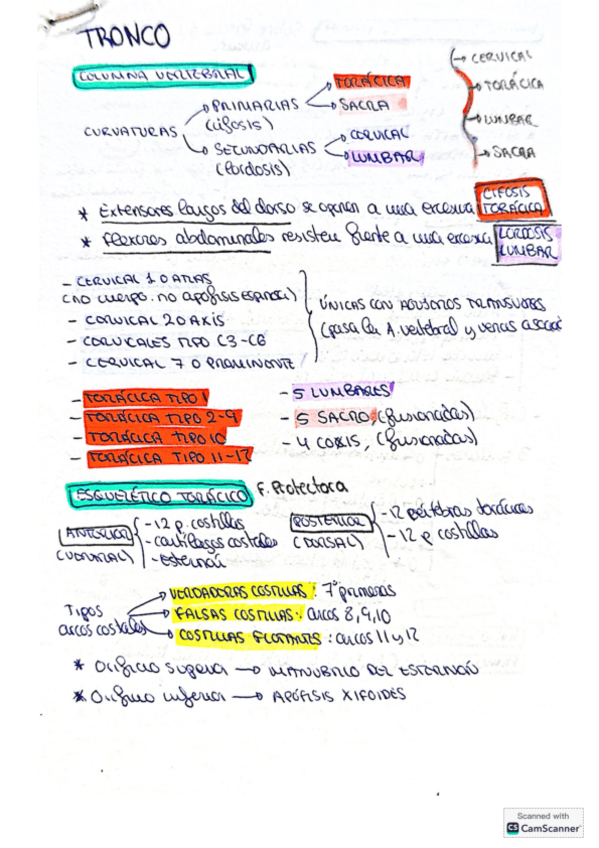 TRONCO
COLUMNA VERTEBRAL
CURVATURAS
PRIMARIAS
(cifosis)
TORÁCICA
SACRA
SECUNDARIAS
(lordosis)
CERVICAL
LUMBAR
CERVICAL
TORÁCICA
LUMBAR
SACRA
* Extensores largos del dorso se oponen a una excesiva CIFOSIS TORÁCICA
* Flexores abdominales resisten frente a una excesiva LORDOSIS LUMBAR
- CERVICAL 1 O ATLAS
(no cuerpo. no apofisis espinosa)
- CERVICAL 2 O AXIS
- CERVICALES TIPO C3-C6
- CERVICAL 7 O PROMINENTE
ÚNICAS CON AGUJEROS TRANSVERSOS
(pasa la A. vertebral y venas
- TORÁCICA TIPO 1
- TORÁCICA TIPO 2-9
- TORÁCICA TIPO 10
- TORÁCICA TIPO 11-12
- 5 LUMBARES
- 5 SACRO, (fusionadas)
- 4 COXIS, (fusionadas)
ESQUELÉTICO TORÁCICO F. Protectora
ANTERIOR
(VENTRAL)
- 12 p. costillas
- cartílagos costales
- esternón
POSTERIOR
(DORSAL)
- 12 vértebras torácicas
- 12 p costillas
Tipos
arcos costales
VERDADERAS COSTILLAS: 7 primeras
FALSAS COSTILLAS: arcos 8,9,10
COSTILLAS FLOTANTES: arcos 11 y 12
* Orificio superior → MANUBRIO DEL ESTERNÓN
* Orificio inferior → APÓFISIS XIFOIDES
Scanned with
CS CamScanner